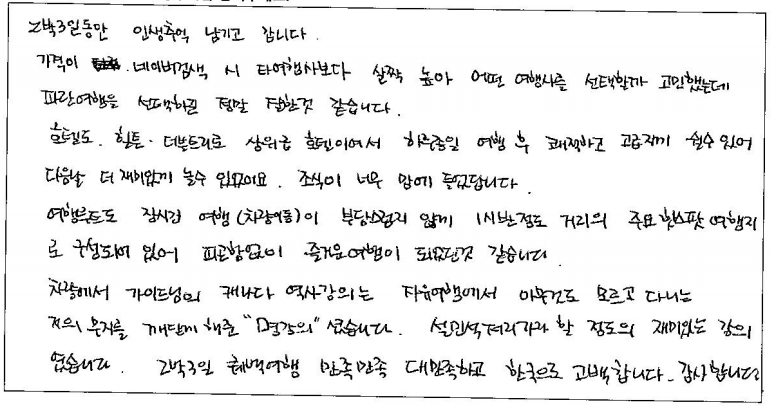 2박3일동안 인생추억 남기고 갑니다.
가격이 네이버검색 시 타여행사보다 살짝 높아 어떤 여행사를 선택할까 고민했는데
파란여행을 선택하길 정말 잘한것 같습니다.
호텔도. 힐튼·더블트리로 상위급 호텔이여서 하루종일 여행 후 쾌적하고 고급지게 쉴수 있어
다음날 더 재미있게 놀수 있었어요. 조식이 너무 맘에 들었답니다.
여행루트도 장시간 여행(차량이동)이 부담스럽지 않게 1시간반정도 거리의 주요 핫스팟 여행지
로 구성되어 있어 피곤함없이 즐거운여행이 되었던것 같습니다.
차량에서 가이드님의 캐나다 역사강의는 자유여행에서 아무것도 모르고 다니는
저의 무지를 깨닫게 해준 "명강의" 였습니다. 설민석저리가라 할 정도의 재미있는 강의
였습니다. 2박3일 퀘벡여행 만족만족 대만족하고 한국으로 고백합니다. 감사합니다